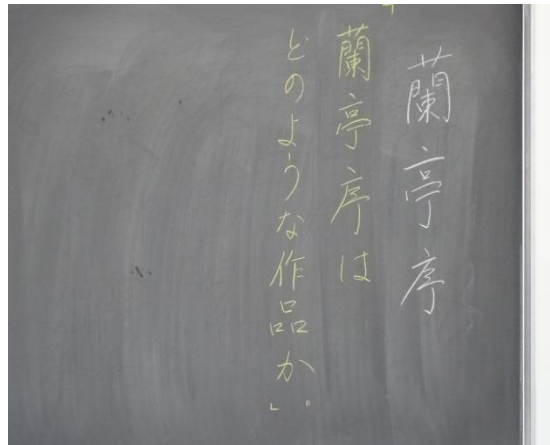 蘭亭序
「蘭亭序は
どのような作品か。」